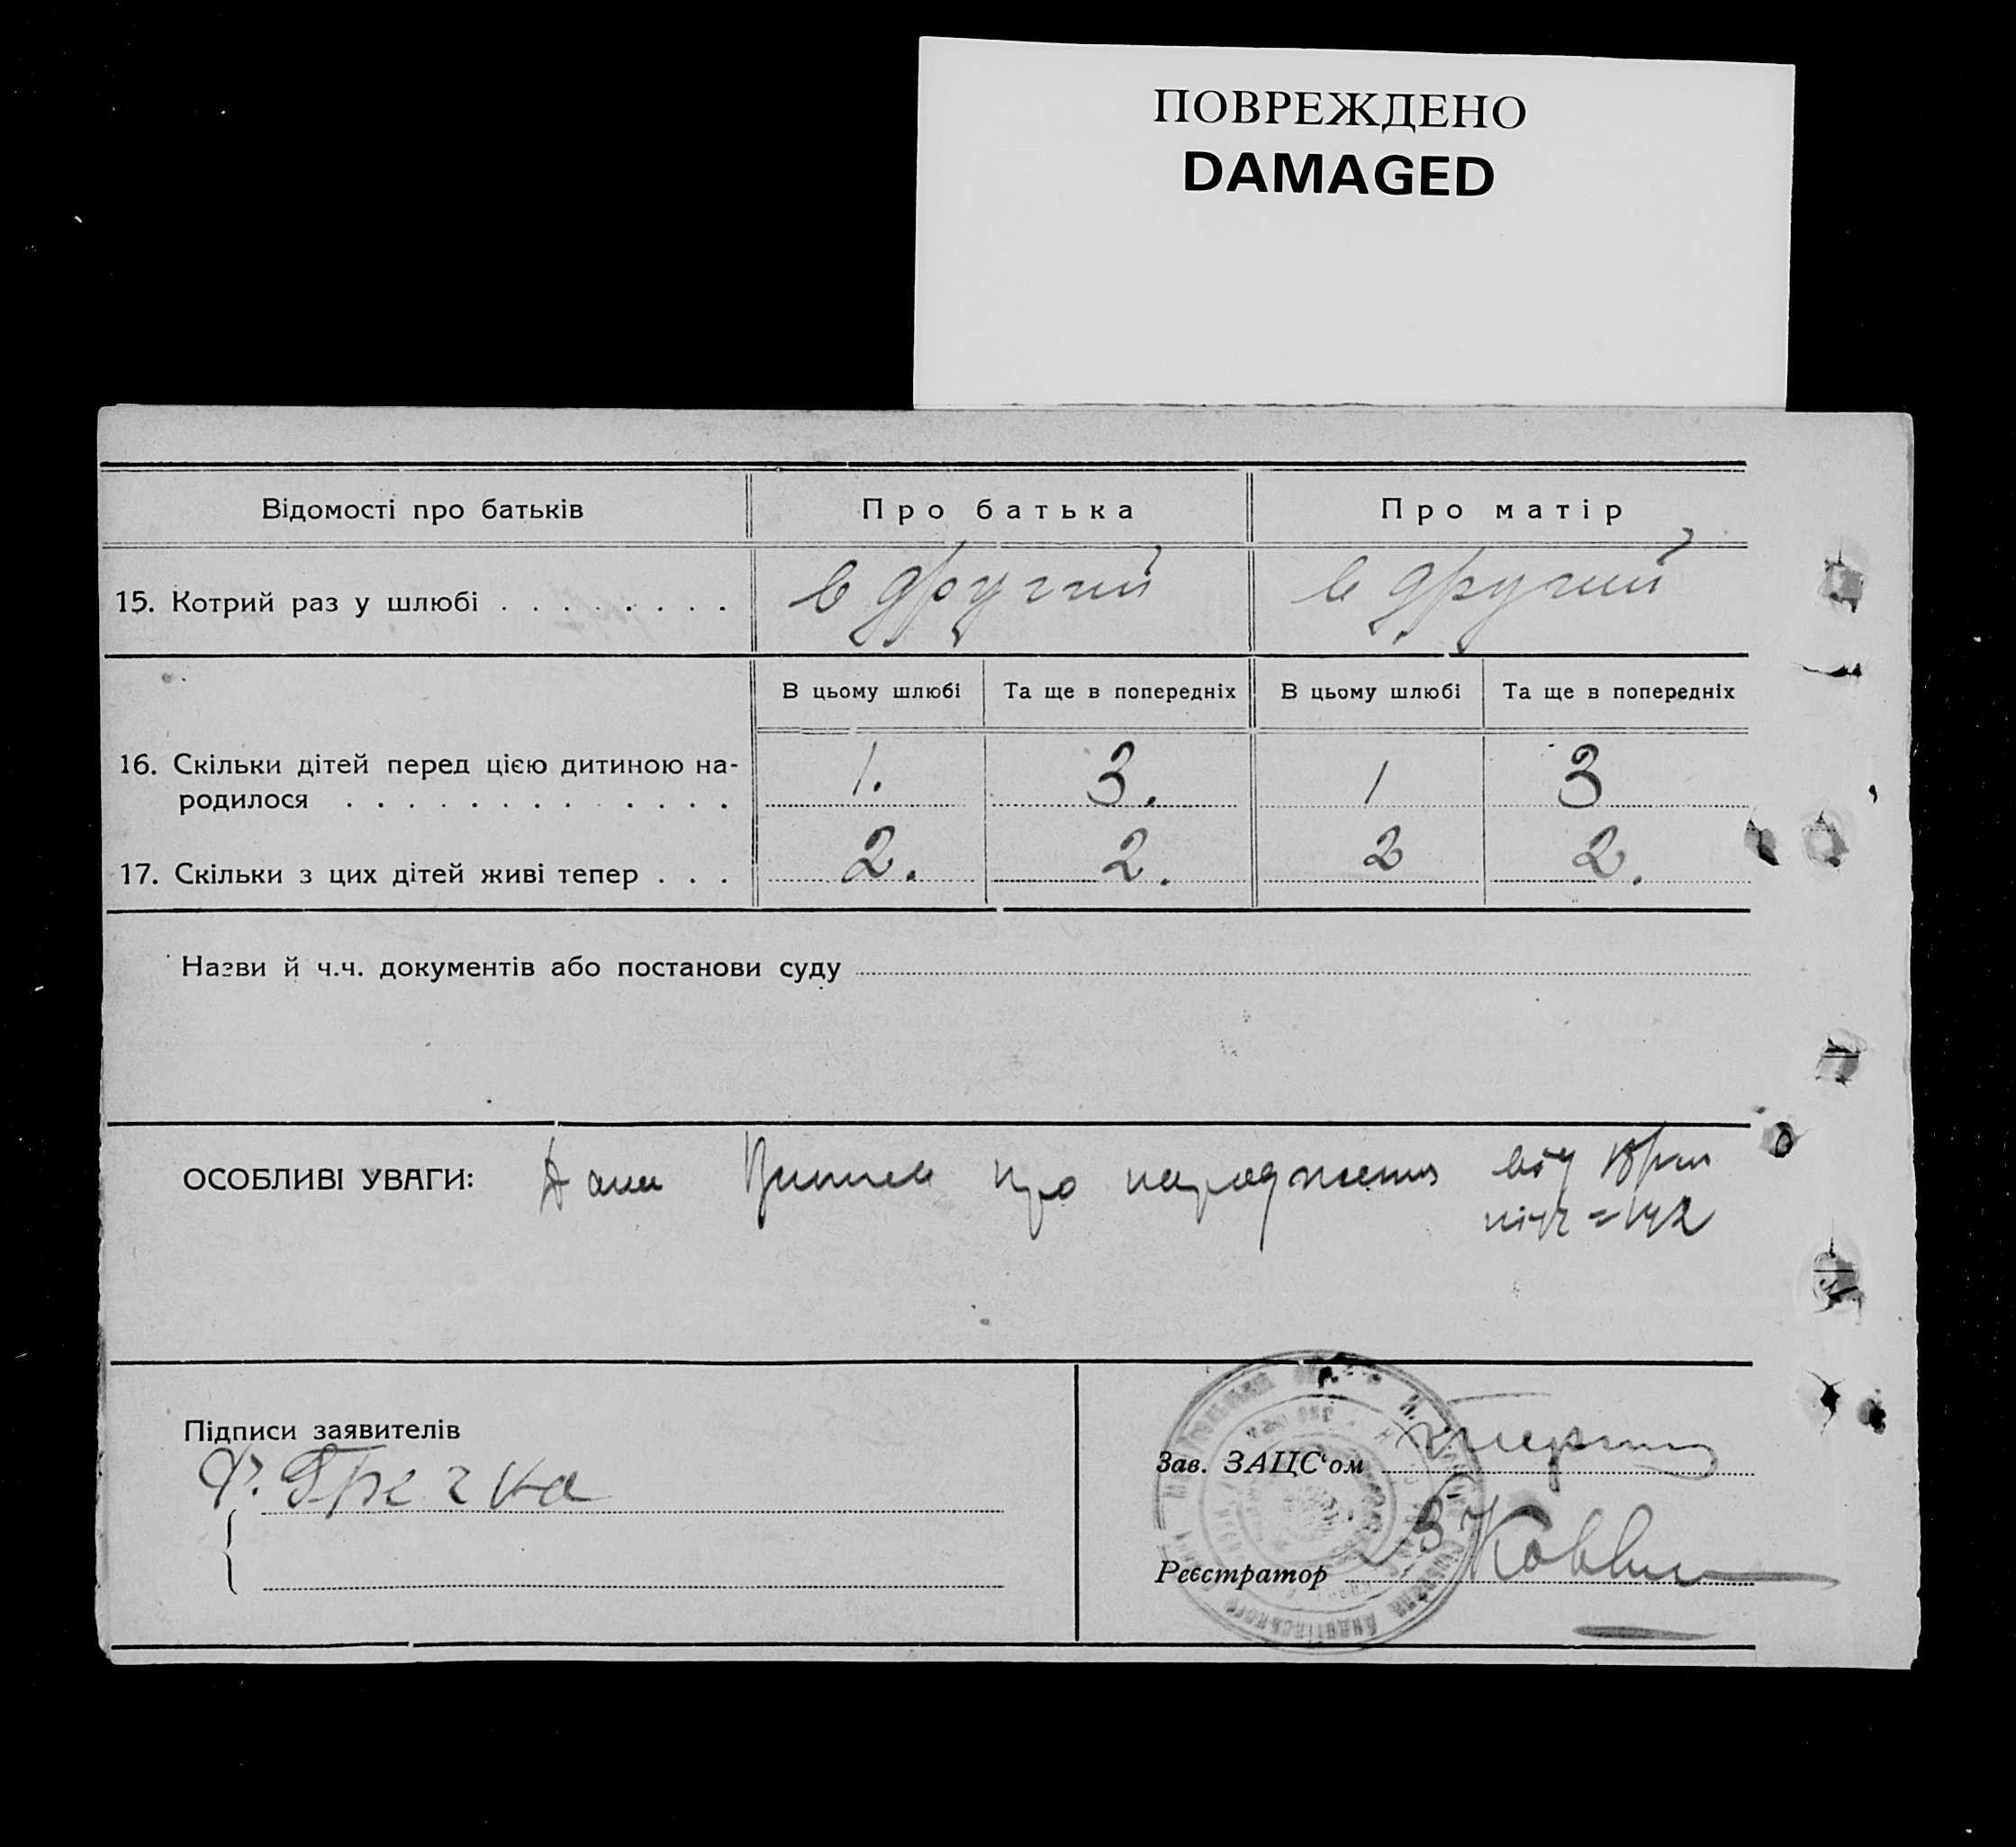 ПОВРЕЖДЕНО
DAMAGED
Відомості про батьків
Про батька
Про матір
15. Котрий раз у шлюбі . . . . . . . .
в другий
в другий
В цьому шлюбі
Та ще в попередніх
В цьому шлюбі
Та ще в попередніх
16. Скільки дітей перед цією дитиною на-
родилося . . . . . . . . . . . . .
1.
3.
1
3
17. Скільки з цих дітей живі тепер . . .
2.
2.
2
2.
Назви й ч.ч. документів або постанови суду
ОСОБЛИВІ УВАГИ:
про народження
Підписи заявителів
Ф. Гречка
Зав. ЗАЦС‘ом
Реєстратор